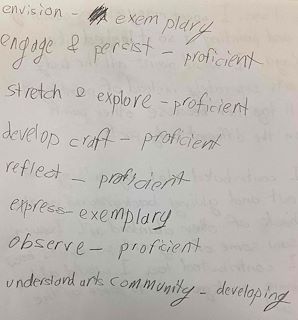 envision - exemplary
engage & persist - proficient
stretch & explore - proficient
develop craft - proficient
reflect - proficient
express - exemplary
observe - proficient
understand arts community - developing